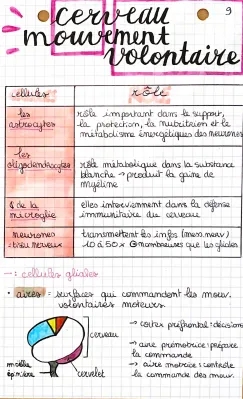 cerveau
9
mouvement
volontaire
cellules
rôle
les
astrocytes
rôle important dans le support,
la protection, la nutrition et le
métabolisme énergétiques des neurones
les
oligodendrocytes
rôle métabolique dans la substance
blanche → produit la gaine de
myéline
¢ de la
microglie
elles interviennent dans la défense
immunitaire du cerveau
neurones
transmettent les infos (mess. nerv.)
= tissu nerveux
10 à 50 x nombreuses que les gliales
→ : cellules gliales
• aires = surfaces qui commandent les mouv.
volontaires moteurs.
→ cortex préfrontal : décisions
cerveau
→ aire prémotrice : prépare
la commande
→ aire motrice : contrôle
la commande des mouv.
moëlle
épinière
cervelet